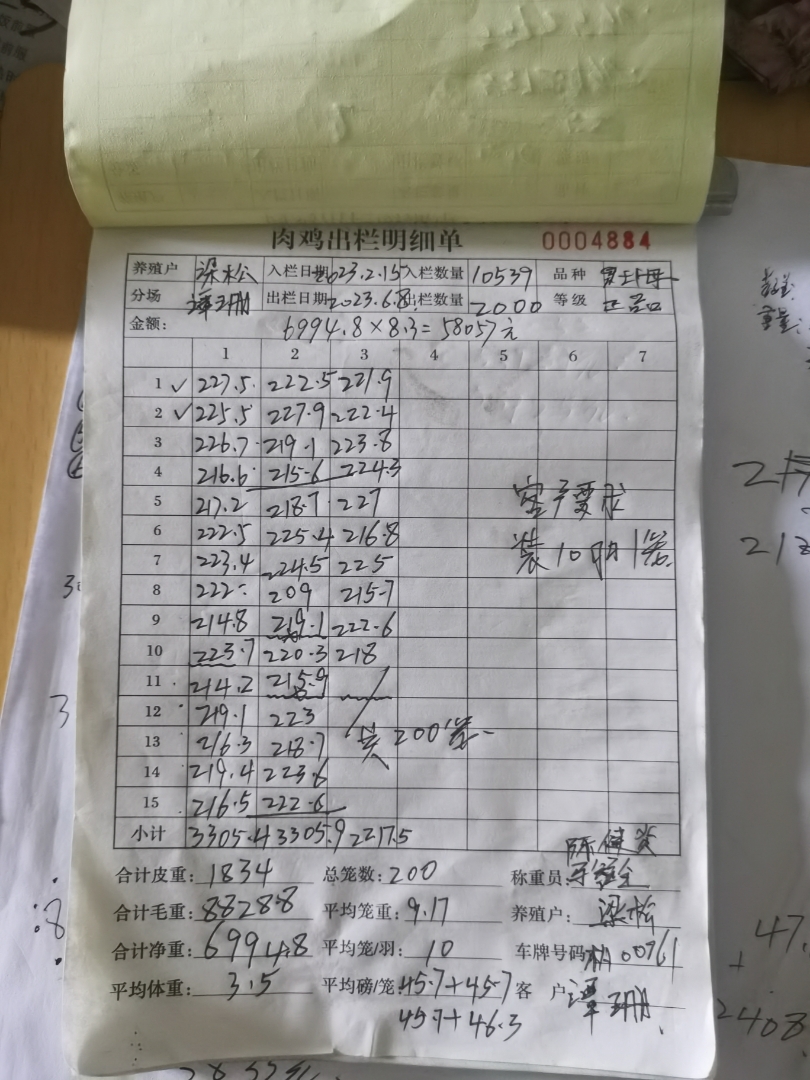 肉鸡出栏明细单 0004884
养殖户 梁松 入栏日期 2023.2.15 入栏数量 10539 品种
分场 谭珊 出栏日期 2023.6.8 出栏数量 2000 等级 正品
金额: 6994.8×8.3=58057元
1 2 3 4 5 6 7
1 ✓ 227.5 222.5 221.9
2 ✓ 225.5 227.9 222.4
3 226.7 219.1 223.8
4 216.6 215.6 224.3
5 217.2 218.7 227 客户要求
6 222.5 225.4 216.8
7 223.4 224.5 225 装10only1笼
8 222 209 215.7
9 214.8 219.1 222.6
10 223.7 220.3 218
11 214.2 215.9
12 219.1 223
13 216.3 218.7 共200笼
14 219.4 223.6
15 216.5 222.6
小计 3305.4 3305.9 2217.5
合计皮重: 1834 总笼数: 200 称重员:
合计毛重: 8828.8 平均笼重: 9.17 养殖户: 梁松
合计净重: 6994.8 平均笼/羽: 10 车牌号码 00761
平均体重: 3.5 平均磅/笼: 45.7+45.7 客 户 谭珊
45.7+46.3